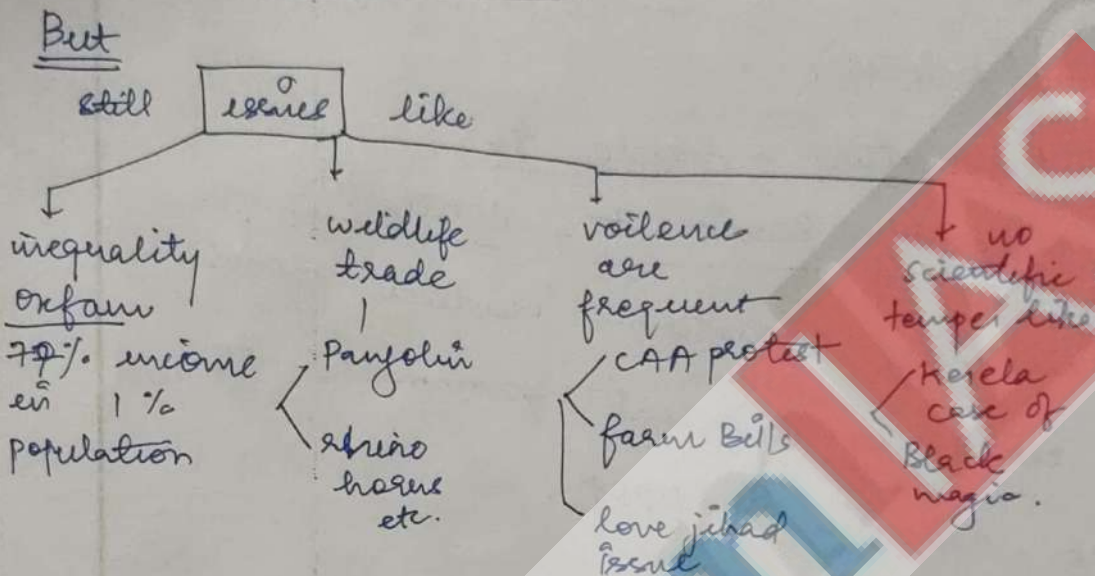 But
still issues like
inequality
oxfam
77% income
in 1%
population
wildlife
trade
Pangolin
rhino
horns
etc.
voilence
are
frequent
CAA protest
farm Bills
love jihad
issue
no
scientific
temper like
Kerela
case of
Black
magic.